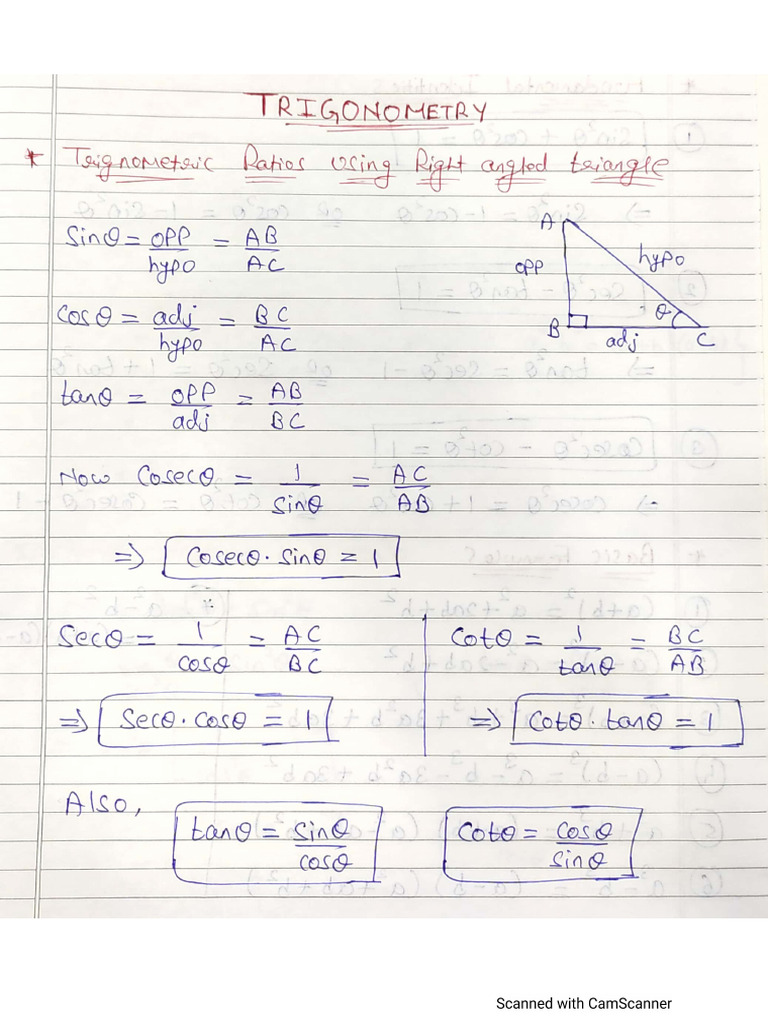 TRIGONOMETRY
* Trignometric Ratios using Right angled triangle
Sinθ = opp/hypo = AB/AC
A
opp
hypo
θ
B
adj
C
Cosθ = adj/hypo = BC/AC
tanθ = opp/adj = AB/BC
Now Cosecθ = 1/Sinθ = AC/AB
⇒ Cosecθ · Sinθ = 1
Secθ = 1/cosθ = AC/BC
⇒ Secθ · cosθ = 1
Cotθ = 1/tanθ = BC/AB
⇒ Cotθ · tanθ = 1
Also,
tanθ = Sinθ/cosθ
Cotθ = Cosθ/Sinθ
Scanned with CamScanner